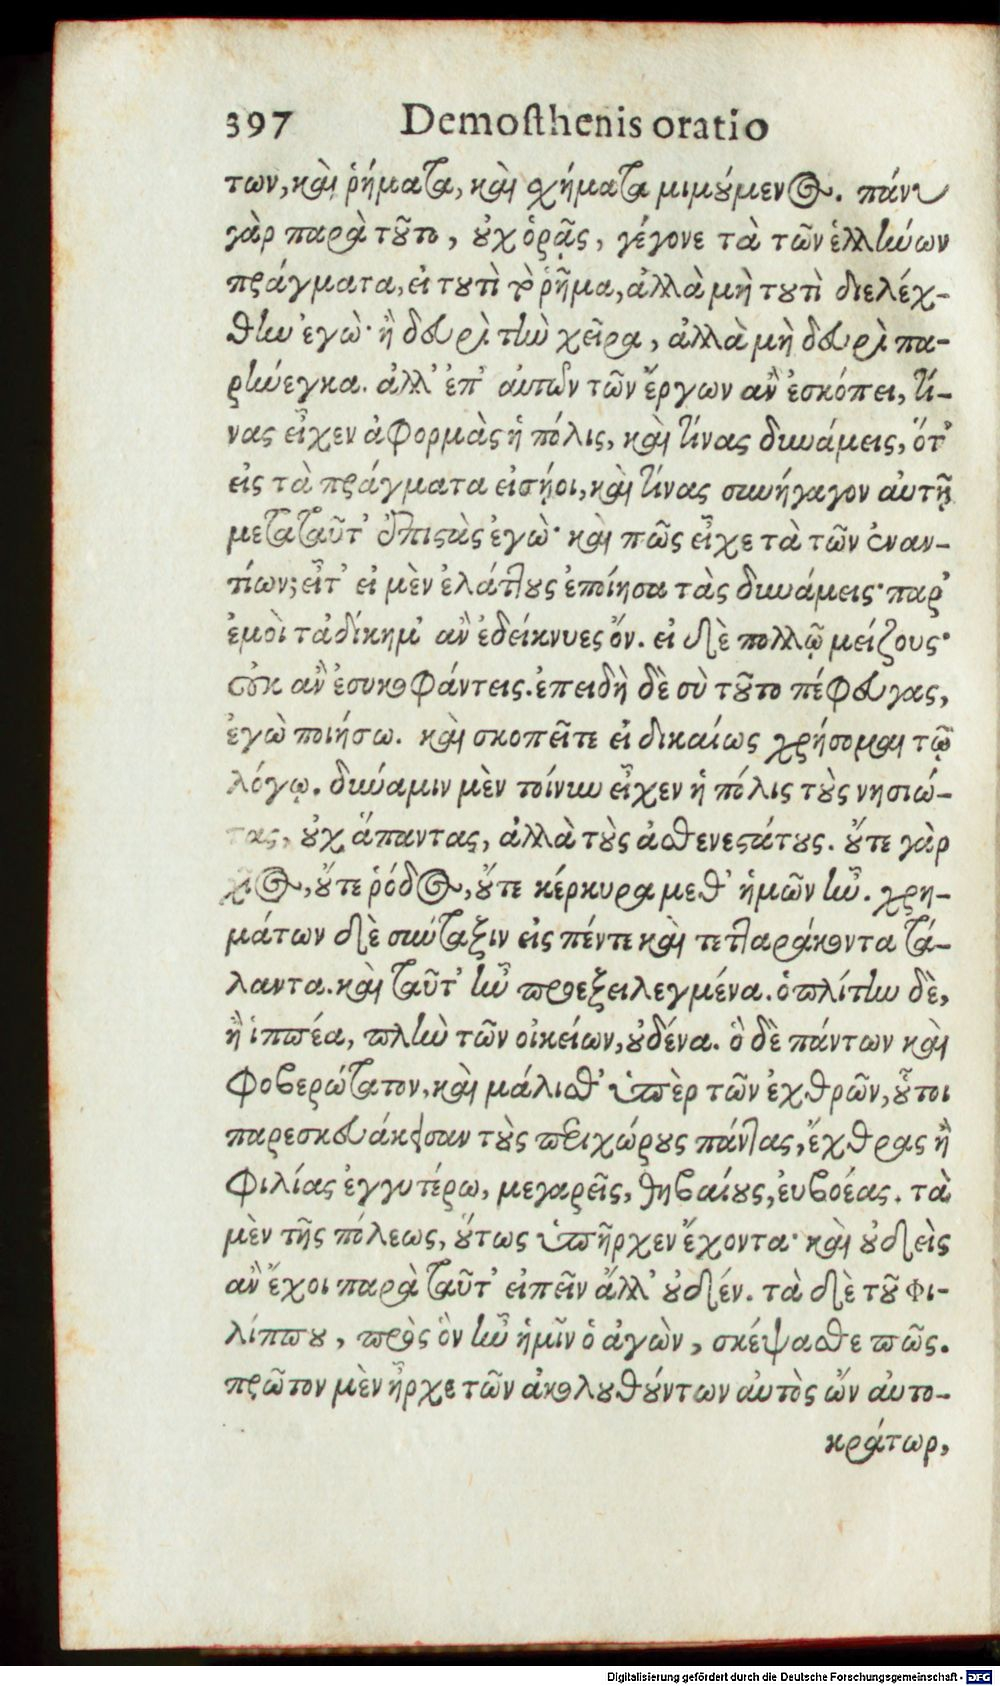 397 Demosthenis oratio
των, καὶ ῥήματα, καὶ σχήματα μιμούμενος. πάνυ
γὰρ παρὰ τοῦτο, οὐχ ὁρᾷς, γέγονε τὰ τῶν ἑλλήνων
πράγματα, εἰ τουτὶ τὸ ῥῆμα, ἀλλὰ μὴ τουτὶ διελέχ-
θην ἐγὼ· ἢ δευρὶ τὴν χεῖρα, ἀλλὰ μὴ δευρὶ πα-
ρήνεγκα. ἀλλ' ἐπ' αὐτῶν τῶν ἔργων ἂν ἐσκόπει, τί-
νας εἶχεν ἀφορμὰς ἡ πόλις, καὶ τίνας δυνάμεις, ὅτ'
εἰς τὰ πράγματα εἰσῄοι, καὶ τίνας συνήγαγον αὐτῇ
μετὰ ταῦτ' ἐπιστὰς ἐγὼ· καὶ πῶς εἶχε τὰ τῶν ἐναν-
τίων; εἶτ' εἰ μὲν ἐλάττους ἐποίησα τὰς δυνάμεις· παρ'
ἐμοὶ τἀδίκημ' ἂν ἐδείκνυες ὄν. εἰ δὲ πολλῷ μείζους·
οὐκ ἂν ἐσυκοφάντεις. ἐπειδὴ δὲ σὺ τοῦτο πέφευγας,
ἐγὼ ποιήσω. καὶ σκοπεῖτε εἰ δικαίως χρήσομαι τῷ
λόγῳ. δύναμιν μὲν τοίνυν εἶχεν ἡ πόλις τοὺς νησιώ-
τας, οὐχ ἅπαντας, ἀλλὰ τοὺς ἀσθενεστάτους. οὔτε γὰρ
χῖος, οὔτε ῥόδος, οὔτε κέρκυρα μεθ' ἡμῶν ἦν. χρη-
μάτων δὲ σύνταξιν εἰς πέντε καὶ τετταράκοντα τά-
λαντα. καὶ ταῦτ' ἦν προεξειλεγμένα. ὁπλίτην δὲ,
ἢ ἱππέα, πλὴν τῶν οἰκείων, οὐδένα. ὃ δὲ πάντων καὶ
φοβερώτατον, καὶ μάλισθ' ὑπὲρ τῶν ἐχθρῶν, οὗτοι
παρεσκευάκεσαν τοὺς περιχώρους πάντας, ἔχθρας ἢ
φιλίας ἐγγυτέρω, μεγαρεῖς, θηβαίους, εὐβοέας. τὰ
μὲν τῆς πόλεως, οὕτως ὑπῆρχεν ἔχοντα· καὶ οὐδεὶς
ἂν ἔχοι παρὰ ταῦτ' εἰπεῖν ἄλλ' οὐδέν. τὰ δὲ τοῦ φι-
λίππου, πρὸς ὃν ἦν ἡμῖν ὁ ἀγὼν, σκέψασθε πῶς.
πρῶτον μὲν ἦρχε τῶν ἀκολουθούντων αὐτὸς ὢν αὐτο-
κράτωρ,
Digitalisierung gefördert durch die Deutsche Forschungsgemeinschaft - DFG